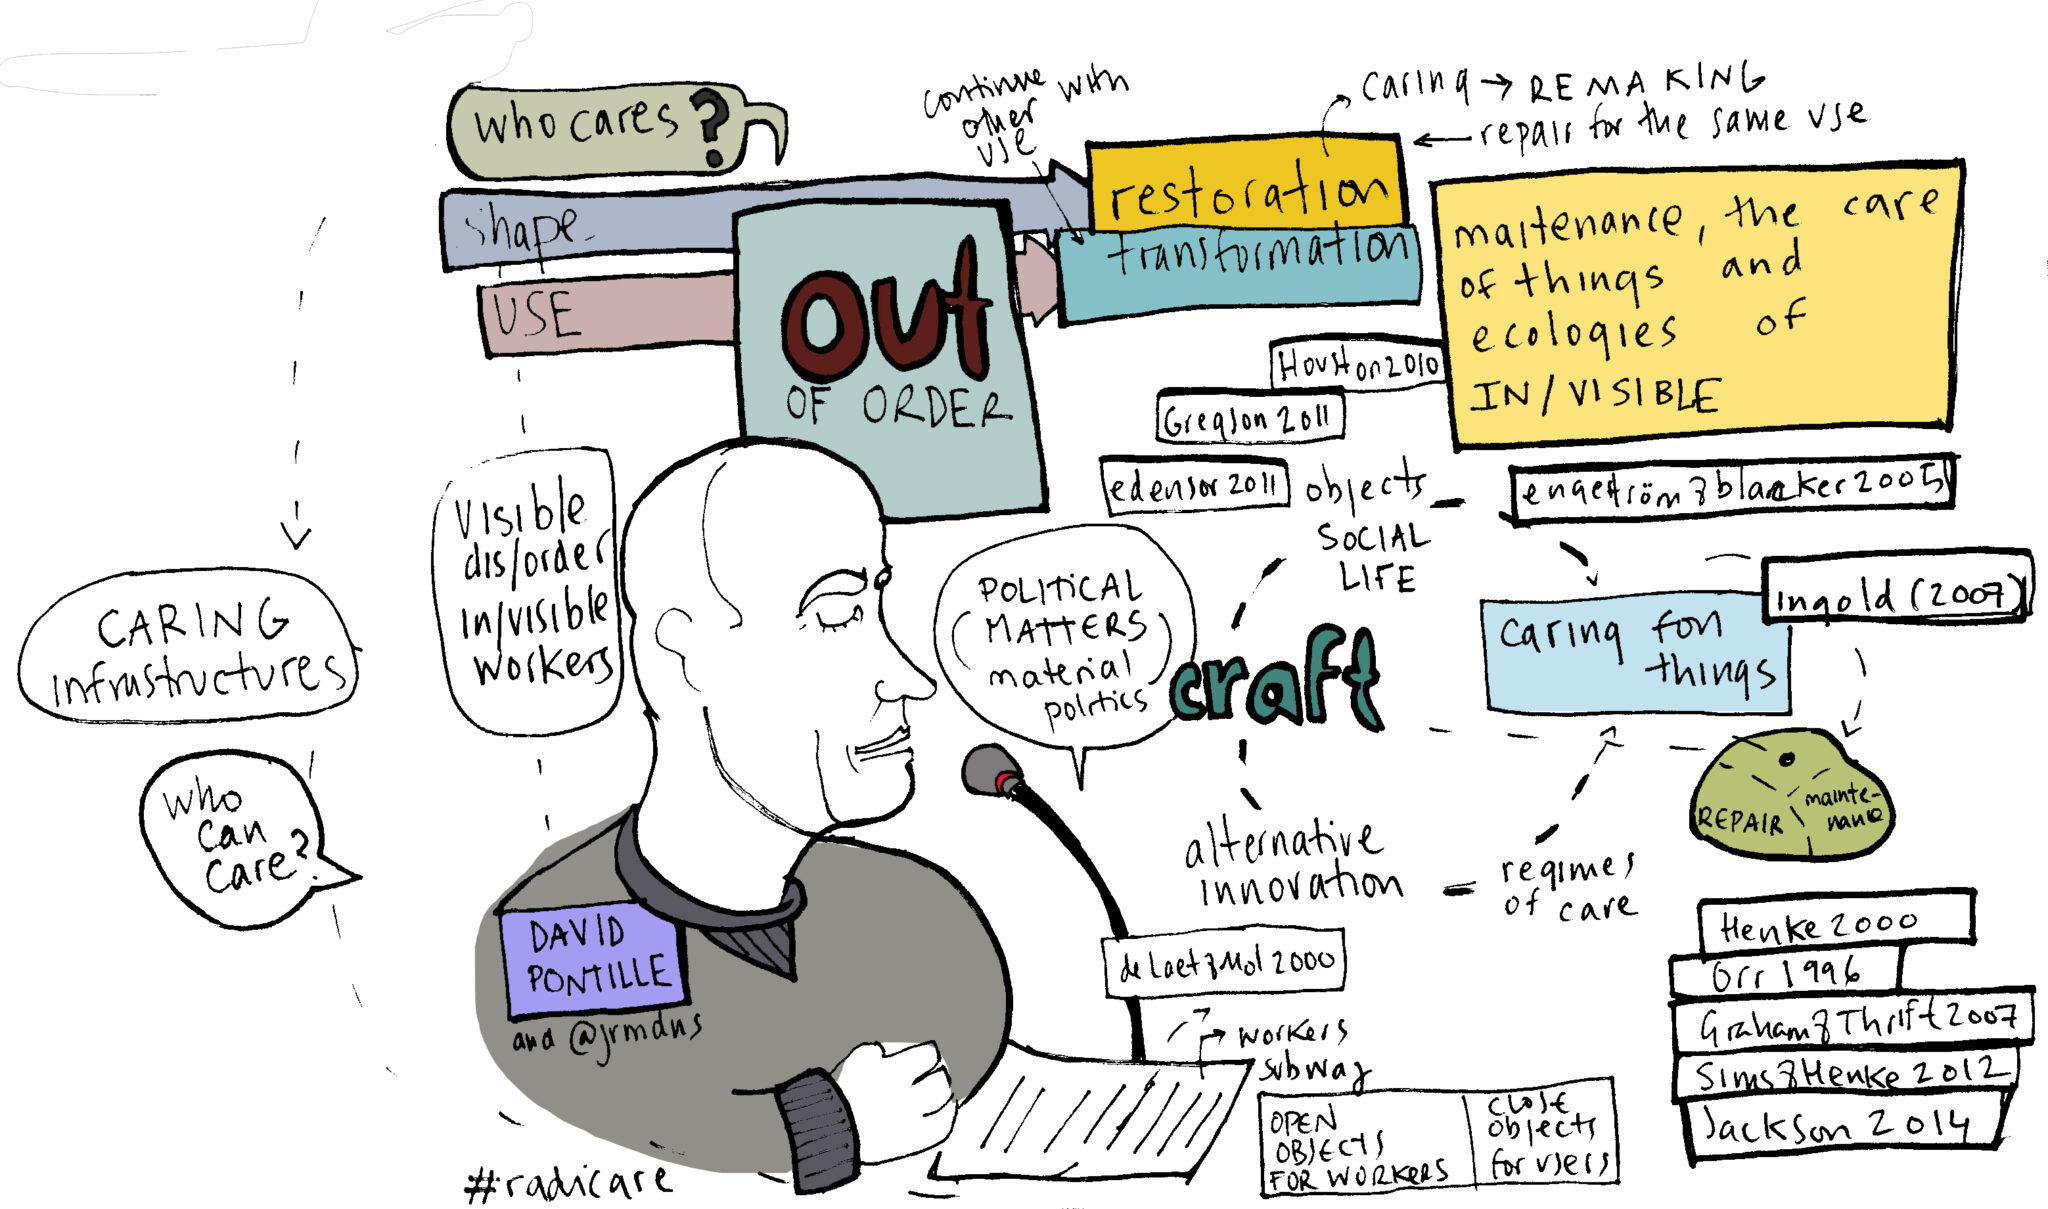 who cares?
continue with
other
use
caring → REMAKING
← repair for the same use
shape
restoration
USE
transformation
OUT
OF ORDER
maitenance, the care
of things and
ecologies of
IN/VISIBLE
Houston 2010
Gregson 2011
edensor 2011
objects
SOCIAL
LIFE
engeström & blaecker 2005
Ingold (2007)
caring fon
things
Visible
dis/order
in/visible
workers
CARING
infrastructures
who
can
care?
POLITICAL
(MATTERS)
material
politics
craft
REPAIR
mainte-
nance
alternative
innovation
regimes
of care
DAVID
PONTILLE
and @jrmdns
de Laet & Mol 2000
Henke 2000
Orr 1996
Graham & Thrift 2007
Sims & Henke 2012
Jackson 2014
workers
subway
OPEN
OBJECTS
FOR WORKERS
CLOSE
objects
for users
#radicare